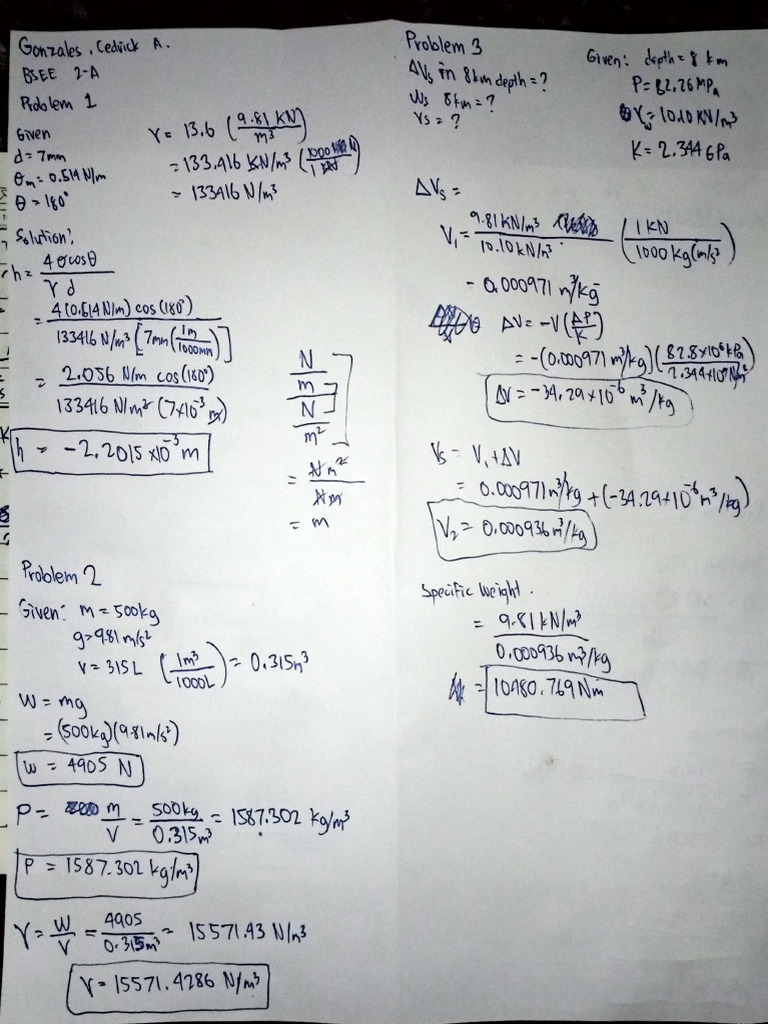 Gonzales, Cedrick A.
BSEE 2-A
Problem 1
Given
d = 7mm
σm = 0.514 N/m
θ = 180°
γ = 13.6 (9.81 KN/m³)
= 133.416 kN/m³ (1000 N/1 kN)
= 133416 N/m³
Solution:
h = 4σcosθ/γd
= 4(0.514 N/m) cos(180°)/133416 N/m³ [7mm(1m/1000mm)]
= 2.056 N/m cos(180°)/133416 N/m² (7x10⁻³ m)
h = -2.2015 x10⁻³ m
N/m
N/m²
= N m²/N m
= m
Problem 2
Given: m = 500kg
g = 9.81 m/s²
v = 315 L (1m³/1000L) = 0.315m³
W = mg
= (500kg)(9.81m/s²)
W = 4905 N
P = m/V = 500kg/0.315m³ = 1587.302 kg/m³
P = 1587.302 kg/m³
γ = W/V = 4905/0.315m³ = 15571.43 N/m³
γ = 15571.4286 N/m³
Problem 3
ΔVs in 8km depth = ?
Ws 8km = ?
Vs = ?
Given: depth = 8 km
P = 82.26 MPa
γw = 10.10 KN/m³
K = 2.344 GPa
ΔVs =
V₁ = 9.81 kN/m³/10.10 kN/m³ (1 KN/1000 kg(m/s²)
- 0.000971 m³/kg
ΔV = -V(ΔP/K)
= -(0.000971 m³/kg)(82.8x10⁶ kPa/2.344x10⁹ N/m²)
ΔV = -34.29x10⁻⁶ m³/kg
Vs = V₁ + ΔV
= 0.000971 m³/kg + (-34.29x10⁻⁶ m³/kg)
V₂ = 0.000936 m³/kg
Specific Weight.
= 9.81 kN/m³/0.000936 m³/kg
= 10480.769 Nm